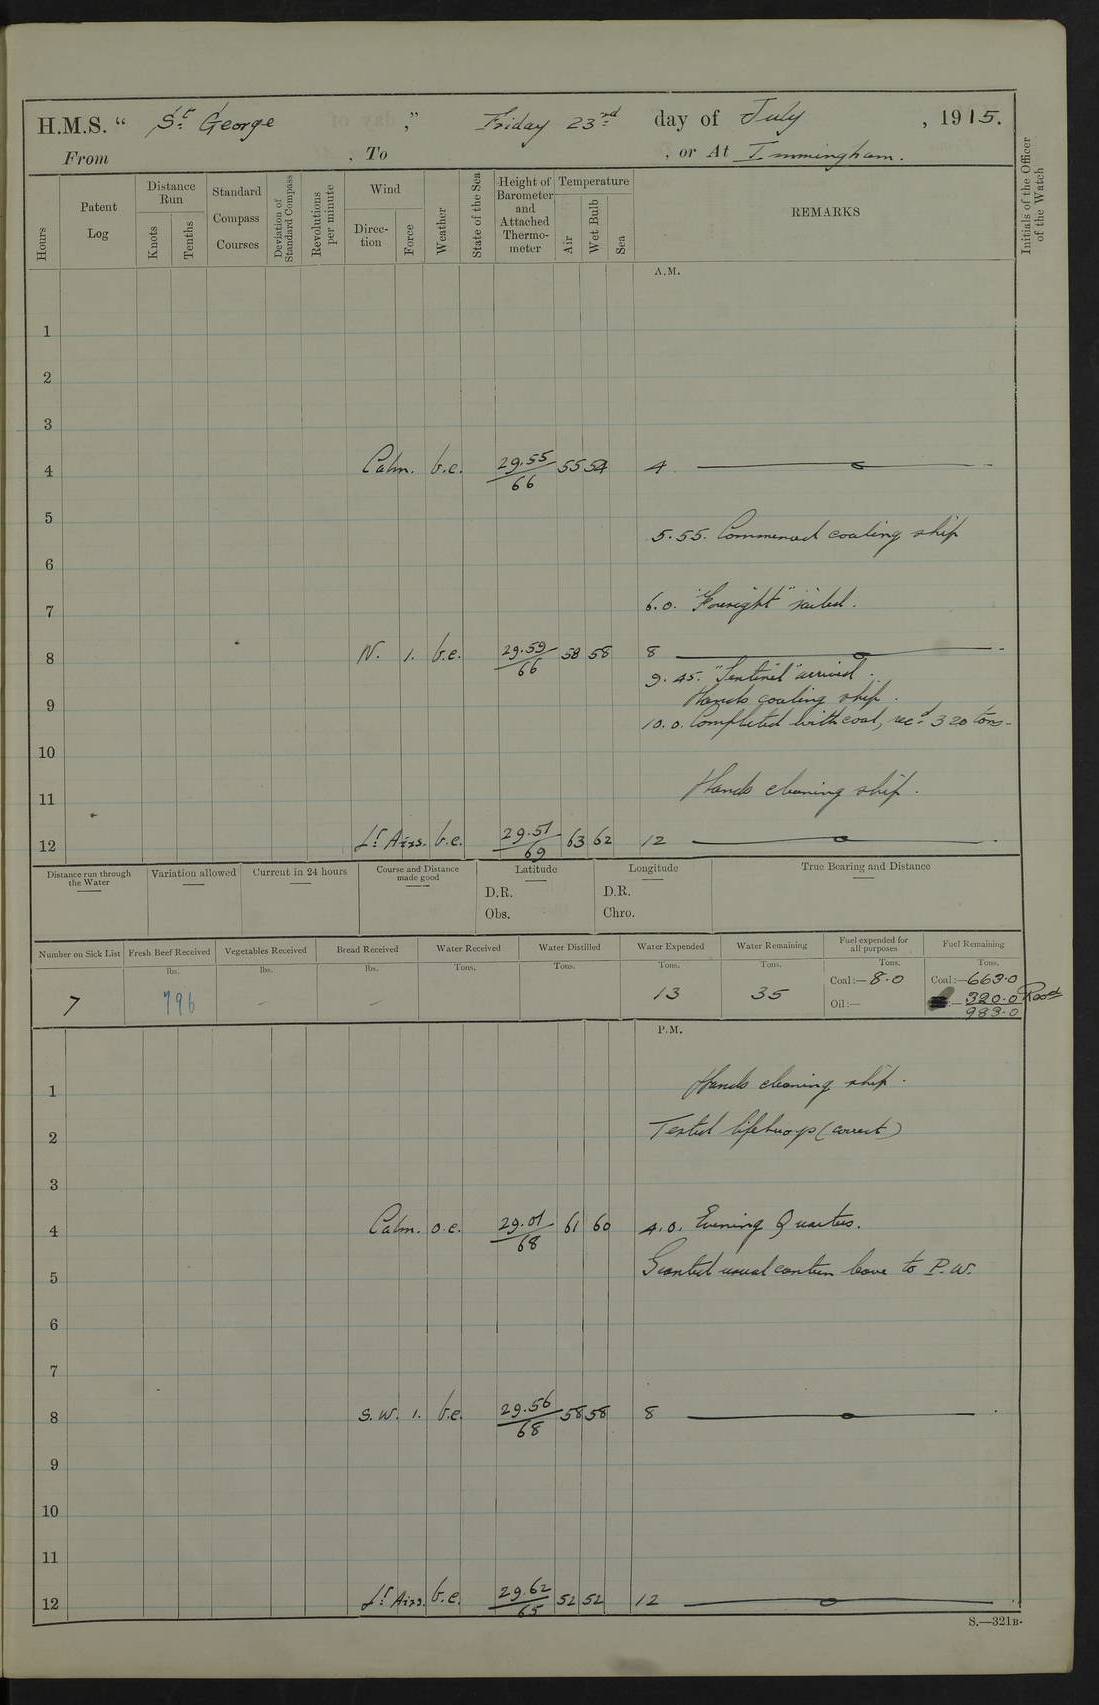 H.M.S. “ St George ,” Friday 23rd day of July , 1915.
From , To , or At Immingham.
Hours
Patent Log
Distance Run
Knots
Tenths
Standard Compass Courses
Deviation of Standard Compass
Revolutions per minute
Wind
Direction
Force
Weather
State of the Sea
Height of Barometer and Attached Thermometer
Temperature
Air
Wet Bulb
Sea
REMARKS
Initials of the Officer of the Watch
A.M.
1
2
3
4 Calm. b.c. 29.55/66 55 54 4
5
5.55. Commenced coaling ship
6
6.0. "Foresight" sailed.
7
8 N. 1. b.c. 29.59/66 58 58 8
9.45. "Sentinel" arrived.
Hands coaling ship.
9
10.0. Completed with coal, recd 320 tons-
10
Hands cleaning ship.
11
12 Lt Airs. b.c. 29.51/69 63 62 12
Distance run through the Water
Variation allowed
Current in 24 hours
Course and Distance made good
Latitude
D.R.
Obs.
Longitude
D.R.
Chro.
True Bearing and Distance
Number on Sick List
7
Fresh Beef Received
lbs.
796
Vegetables Received
lbs.
-
Bread Received
lbs.
-
Water Received
Tons.
Water Distilled
Tons.
Water Expended
Tons.
13
Water Remaining
Tons.
35
Fuel expended for all purposes
Tons.
Coal:— 8.0
Oil:—
Fuel Remaining
Tons.
Coal:— 663.0
320.0 Recd
983.0
P.M.
1
Hands cleaning ship.
2 Tested lifebuoys (correct)
3
4 Calm. o.c. 29.01/68 61 60 4.0. Evening Quarters.
5 Granted usual canteen leave to P.W.
6
7
8 S.W. 1. b.c. 29.56/68 58 58 8
9
10
11
12 Lt Airs. b.c. 29.62/65 52 52 12
S.—321B.